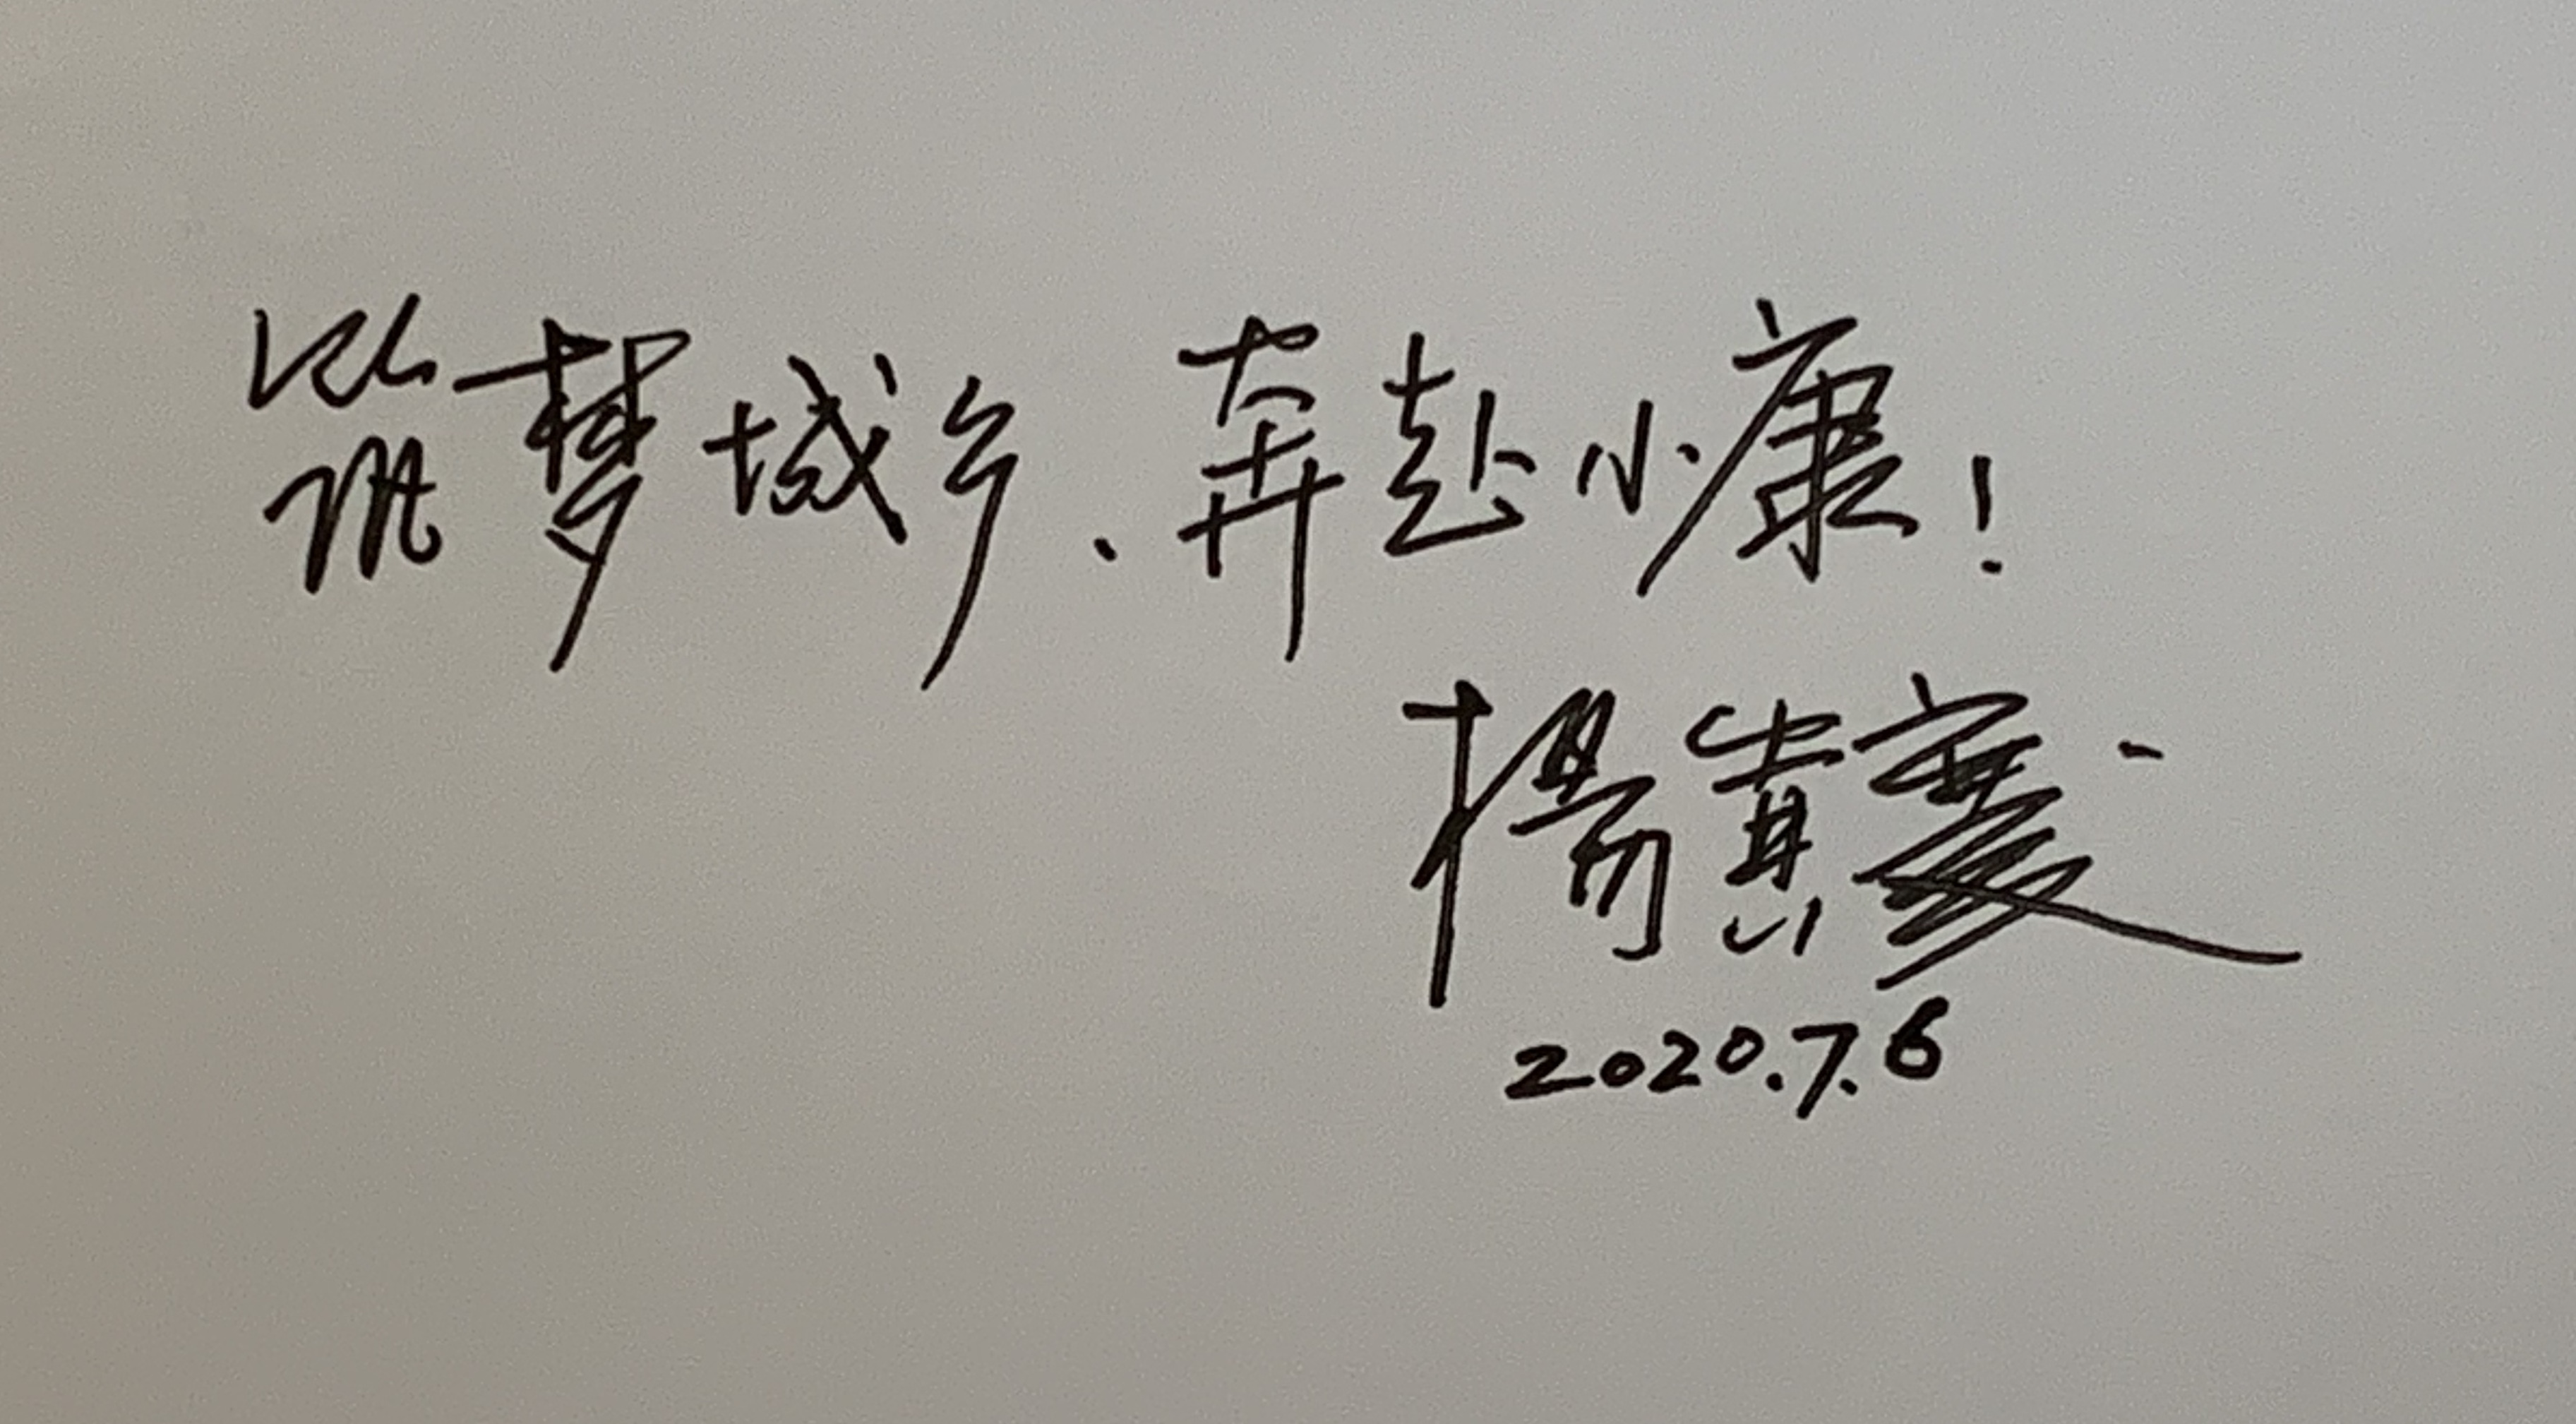 筑梦城乡、奔赴小康!
楊貴
2020.7.6